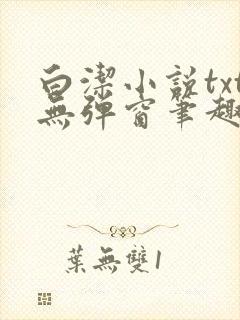 白潔小說txt
無彈窗筆趣
葉無雙1